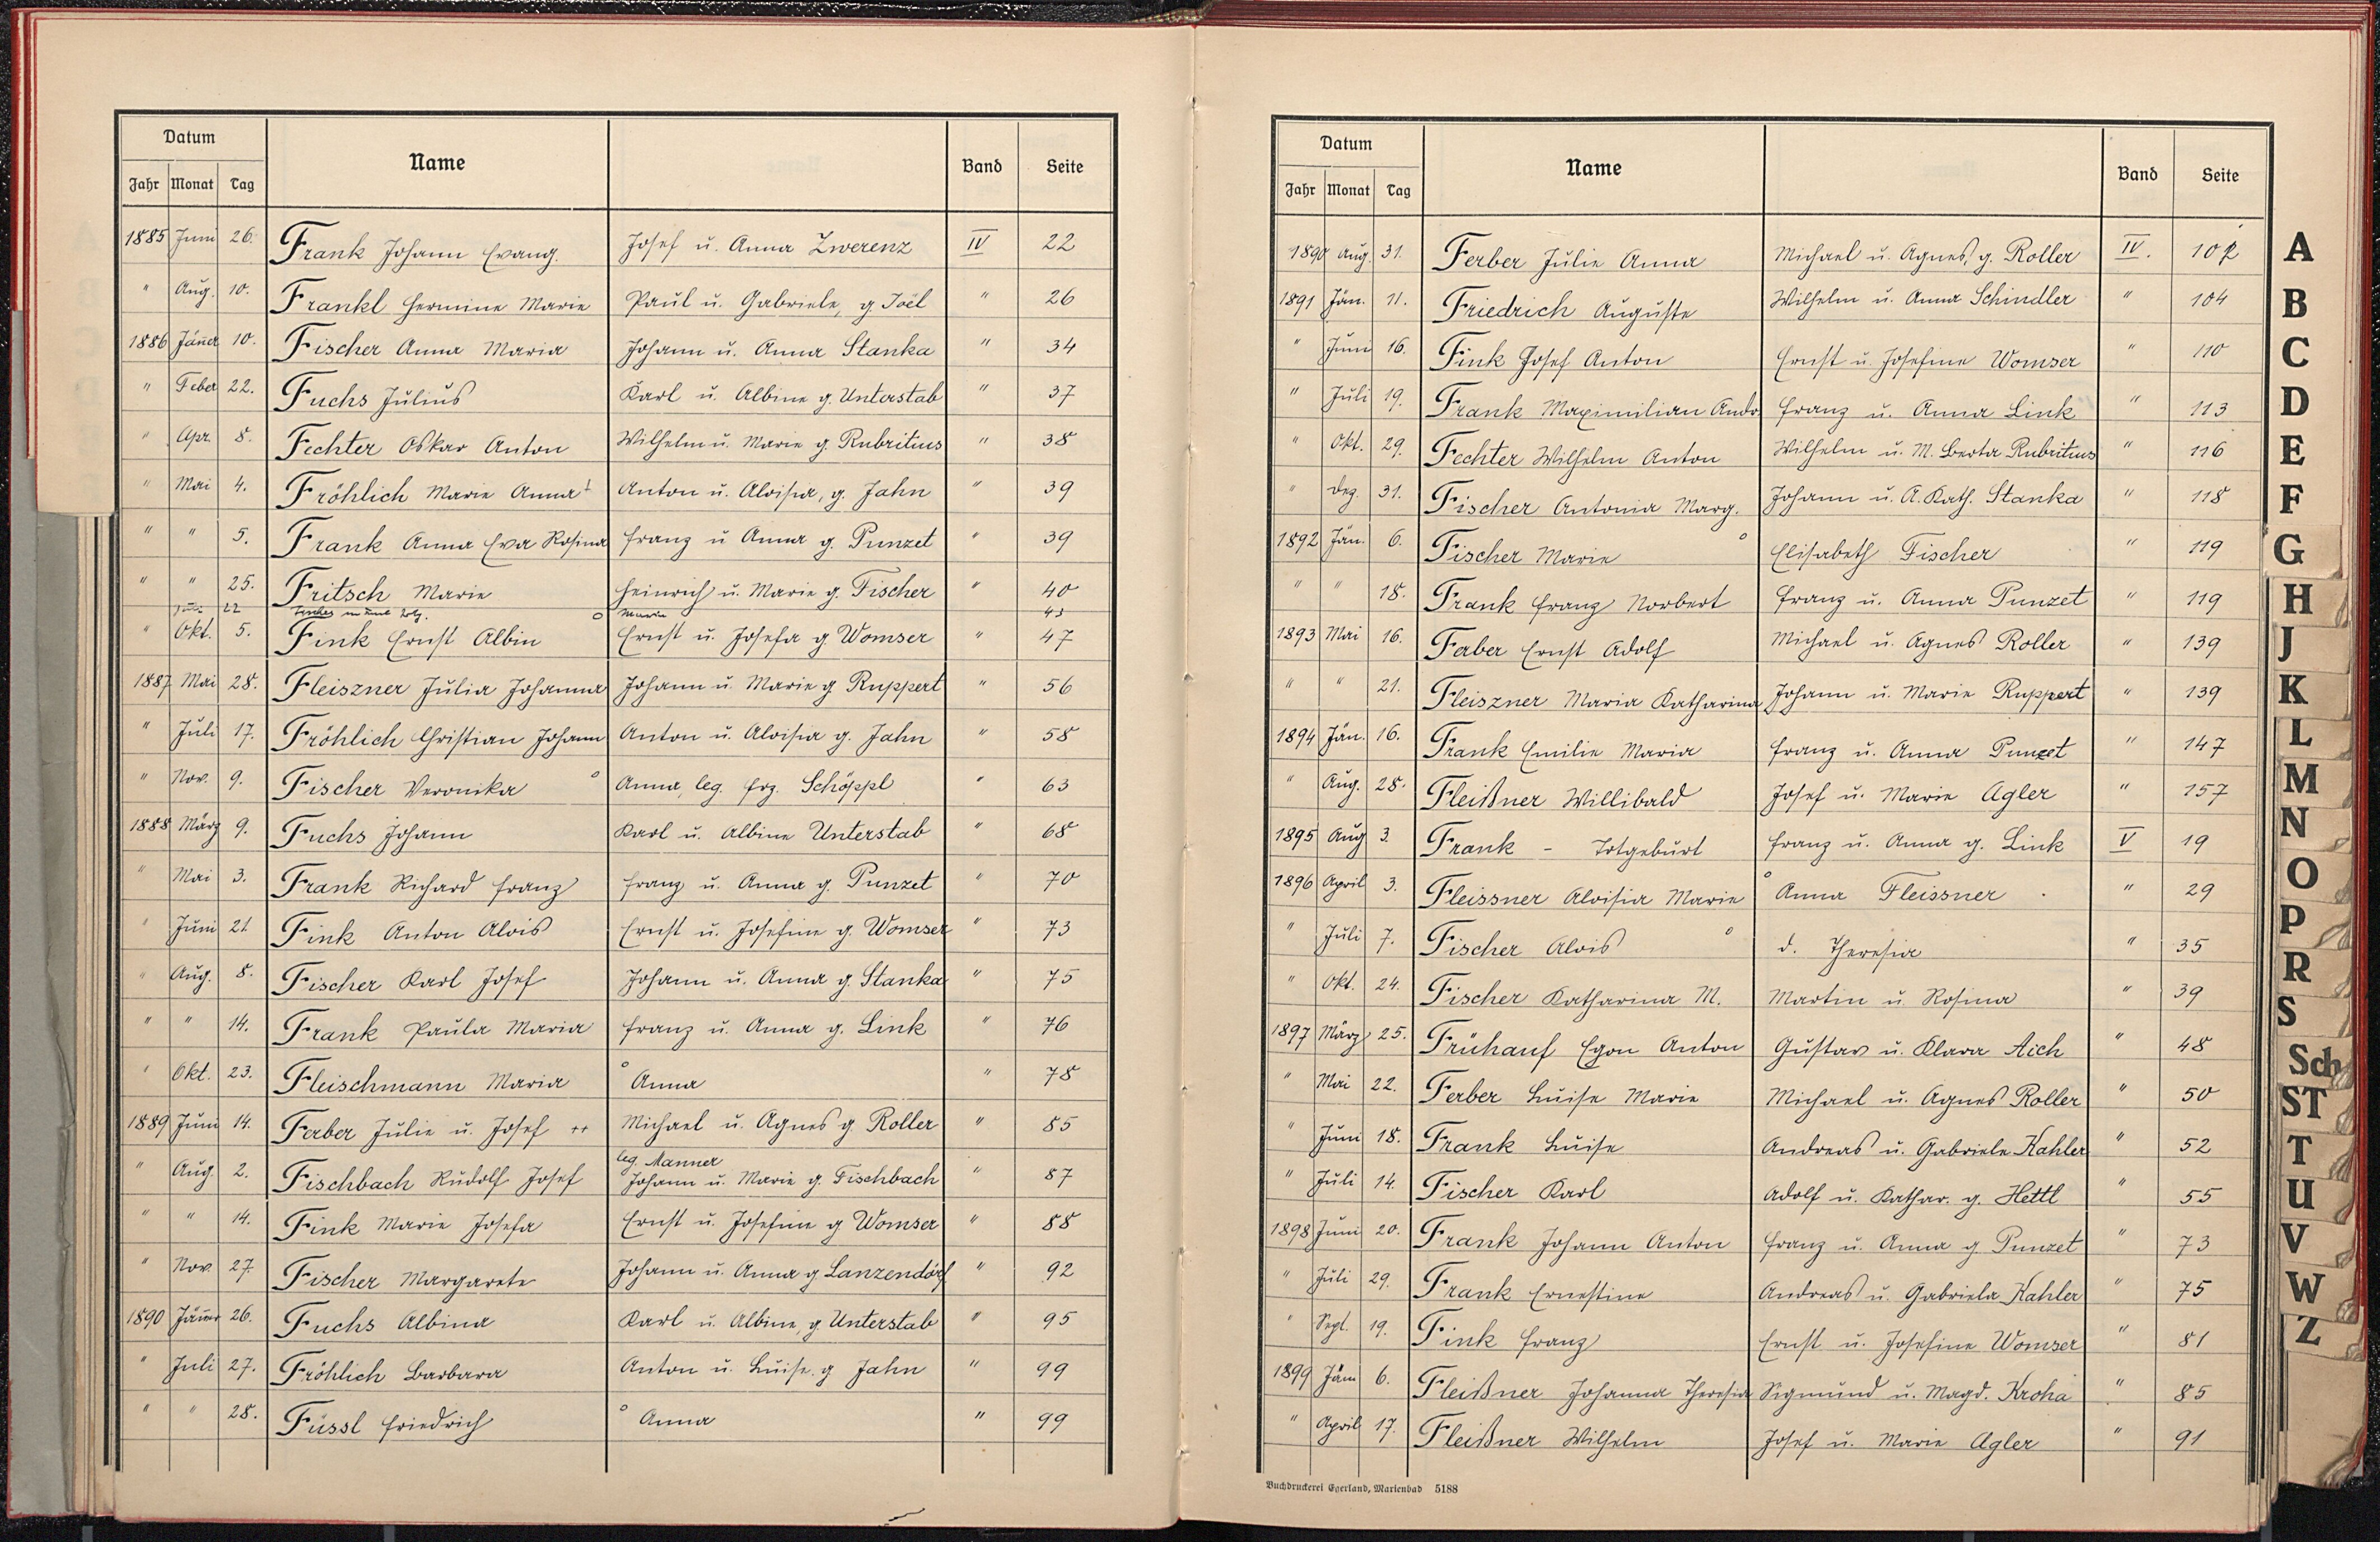 Datum Name Band Seite
Jahr Monat Tag
1885 Juni 26. Frank Johann Evang. Josef u. Anna Zwerenz IV 22
" Aug. 10. Frankl Hermine Marie Paul u. Gabriele, g. Joël " 26
1886 Jäner 10. Fischer Anna Maria Johann u. Anna Stanka " 34
" Feber 22. Fuchs Julius Karl u. Albine g. Unterstab " 37
" Apr. 8. Fechter Oskar Anton Wilhelm u. Marie g. Rubritius " 38
" Mai 4. Fröhlich Marie Anna † Anton u. Aloisia, g. Jahn " 39
" " 5. Frank Anna Eva Rosina Franz u Anna g. Punzet " 39
" " 25. Fritsch Marie Heinrich u. Marie g. Fischer " 40
22 Fischer o Maria 43
" Okt. 5. Fink Ernst Albin Ernst u. Josefa g Womser " 47
1887 Mai 28. Fleiszner Julia Johanna Johann u. Marie g Ruppert " 56
" Juli 17. Fröhlich Christian Johann Anton u. Aloisia g. Jahn " 58
" Nov. 9. Fischer Veronika o Anna, leg. Frz. Schöppl " 63
1888 März 9. Fuchs Johann Karl u. Albine Unterstab " 68
" Mai 3. Frank Richard Franz Franz u. Anna g. Punzet " 70
" Juni 21 Fink Anton Alois Ernst u. Josefine g. Womser " 73
" Aug. 8. Fischer Karl Josef Johann u. Anna g. Stanka " 75
" " 14. Frank Paula Maria Franz u. Anna g. Link " 76
" Okt. 23. Fleischmann Maria o Anna " 78
1889 Juni 14. Ferber Julie u. Josef ++ Michael u. Agnes g Roller " 85
leg. Manner
" Aug. 2. Fischbach Rudolf Josef Johann u. Marie g. Fischbach " 87
" " 14. Fink Marie Josefa Ernst u. Josefine g Womser " 88
" Nov. 27. Fischer Margarete Johann u. Anna g Lanzendörf " 92
1890 Jäner 26. Fuchs Albina Karl u. Albine, g. Unterstab " 95
" Juli 27. Fröhlich Barbara Anton u. Luise. g Jahn " 99
" " 28. Füssl Friedrich o Anna " 99
Datum Name Band Seite
Jahr Monat Tag
1890 Aug. 31. Ferber Julie Anna Michael u. Agnes, g. Roller IV. 102
1891 Jän. 11. Friedrich Auguste Wilhelm u. Anna Schindler " 104
" Juni 16. Fink Josef Anton Ernst u. Josefine Womser " 110
" Juli 19. Frank Maximilian Andr. Franz u. Anna Link " 113
" Okt. 29. Fechter Wilhelm Anton Wilhelm u. M. Berta Rubritius " 116
" Dez. 31. Fischer Antonia Marg. Johann u. A. Kath. Stanka " 118
1892 Jän. 6. Fischer Marie o Elisabeth Fischer " 119
" " 18. Frank Franz Norbert Franz u. Anna Punzet " 119
1893 Mai 16. Ferber Ernst Adolf Michael u. Agnes Roller " 139
" " 21. Fleiszner Maria Katharina Johann u. Marie Ruppert " 139
1894 Jän. 16. Frank Emilie Maria Franz u. Anna Punzet " 147
" Aug. 28. Fleißner Willibald Josef u. Marie Agler " 157
1895 Aug 3. Frank - Totgeburt Franz u. Anna g. Link V 19
1896 April 3. Fleissner Aloisia Marie o Anna Fleissner " 29
" Juli 7. Fischer Alois o d. Theresia " 35
" Okt. 24. Fischer Katharina M. Martin u. Rosina " 39
1897 März 25. Frühauf Egon Anton Gustav u. Klara Aich " 48
" Mai 22. Ferber Luise Marie Michael u. Agnes Roller " 50
" Juni 18. Frank Luise Andreas u. Gabriele Kahler " 52
" Juli 14. Fischer Karl Adolf u. Kathar. g. Hettl " 55
1898 Juni 20. Frank Johann Anton Franz u. Anna g. Punzet " 73
" Juli 29. Frank Ernestine Andreas u. Gabriela Kahler " 75
" Sept. 19. Fink Franz Ernst u. Josefine Womser " 81
1899 Jän 6. Fleißner Johanna Theresia Sigmund u. Magd. Kroha " 85
" April 17. Fleißner Wilhelm Josef u. Marie Agler " 91
Buchdruckerei Egerland, Marienbad 5188
A
B
C
D
E
F
G
H
J
K
L
M
N
O
P
R
S
Sch
ST
T
U
V
W
Z